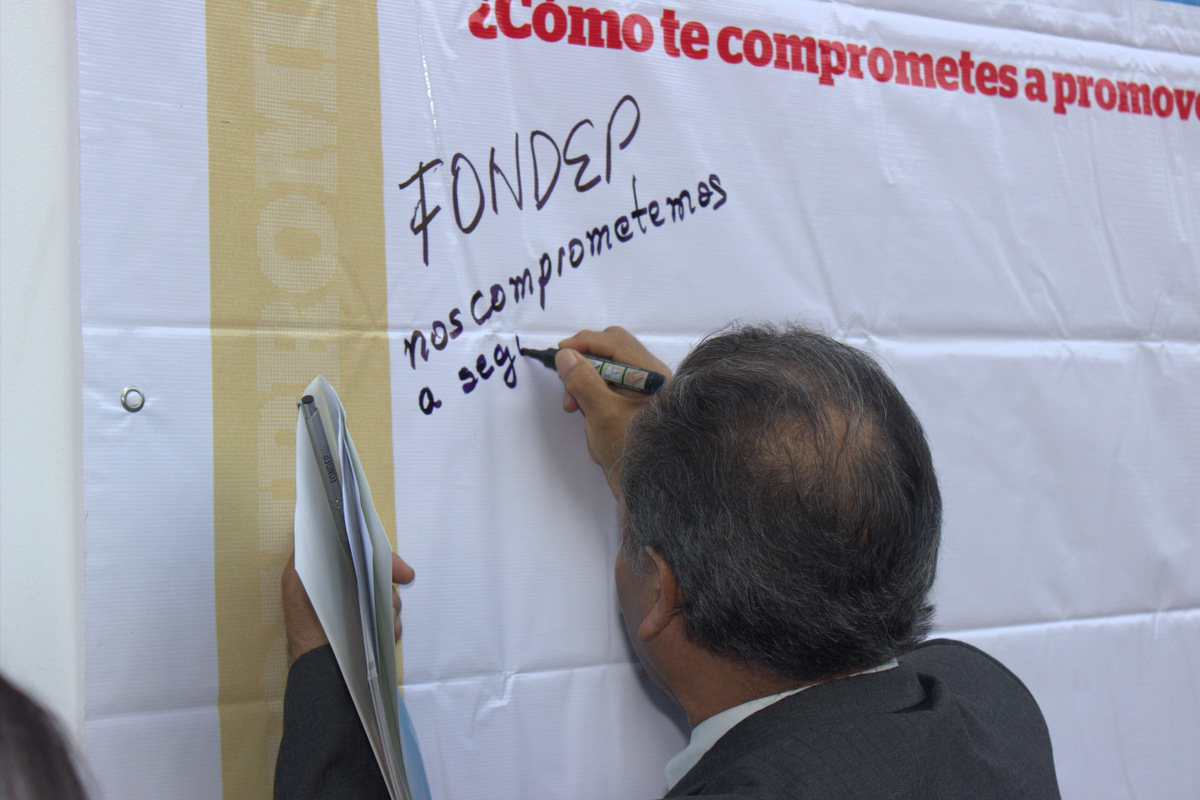 ¿Cómo te comprometes a promove
FONDEP
nos comprometemos
a seg
FONDEP